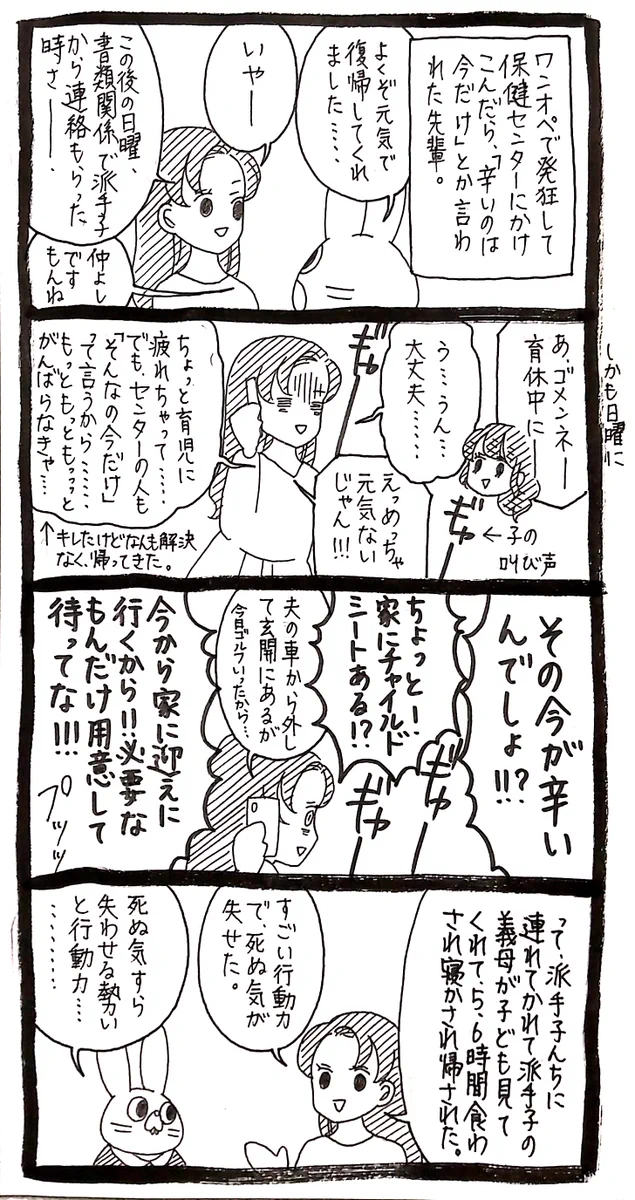 ワンオペで発狂して
保健センターにかけ
こんだら、「辛いのは
今だけ」とか言わ
れた先輩。
よくぞ元気で
復帰してくれ
ました……
いやー
この後の日曜、
書類関係で派手子
から連絡もらった
時さー、
仲よし
です
もんね
しかも日曜に
あ、ゴメンネー
育休中に
ギャ
←子の
叫び声
う…うん…
大丈夫……
ギャ
えっめっちゃ
元気ない
じゃん!!!
ちょっと育児に
疲れちゃって……
でも、センターの人も
「そんなの今だけ」
って言うから……
もっともっともっっと
がんばらなきゃ…
↑キレたけどなんも解決
なく、帰ってきた。
その今が辛い
んでしょ!!?
ギャ
ちょっとー!
家にチャイルド
シートある!?
ギャ
夫の車から外し
て玄関にあるが
今日ゴルフいったから…
今から家に迎えに
行くから!!必要な
もんだけ用意して
待ってな!!!
プツッ
って、派手子んちに
連れてかれて派手子の
義母が子ども見て
くれて、5、6時間食わ
され寝かされ帰された。
すごい行動力
で、死ぬ気が
失せた。
死ぬ気すら
失わせる勢い
と行動力……
………